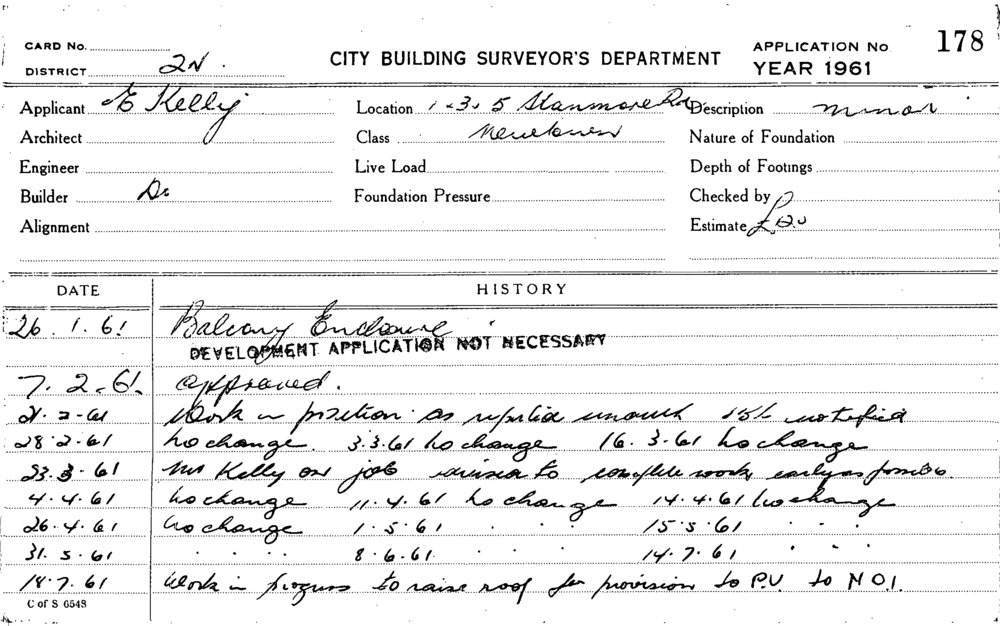 CARD No.
DISTRICT 2N.
CITY BUILDING SURVEYOR'S DEPARTMENT
APPLICATION No 178
YEAR 1961
Applicant E Kelly
Location 1-3-5 Stanmore Rd
Description minor
Architect
Class Newtown
Nature of Foundation
Engineer
Live Load
Depth of Footings
Builder Do
Foundation Pressure
Checked by
Alignment
Estimate £20
DATE HISTORY
26.1.61 Balcony Enclosure
DEVELOPMENT APPLICATION NOT NECESSARY
7.2.61. approved.
21-2-61 Work in position as reported notified
28.2.61 no change. 3.3.61 no change 16.3.61 no change
23.3.61 Mr Kelly on job advised to complete work early as possible.
4.4.61 no change 11.4.61 no change 14.4.61 no change
26.4.61 no change 1.5.61 . . 15.5.61 . . .
31.5.61 . . . . 8.6.61. . . 14.7.61 . . .
18.7.61 Work in progress to raise roof for provision to P.V. to N.O.1.
C of S 6548